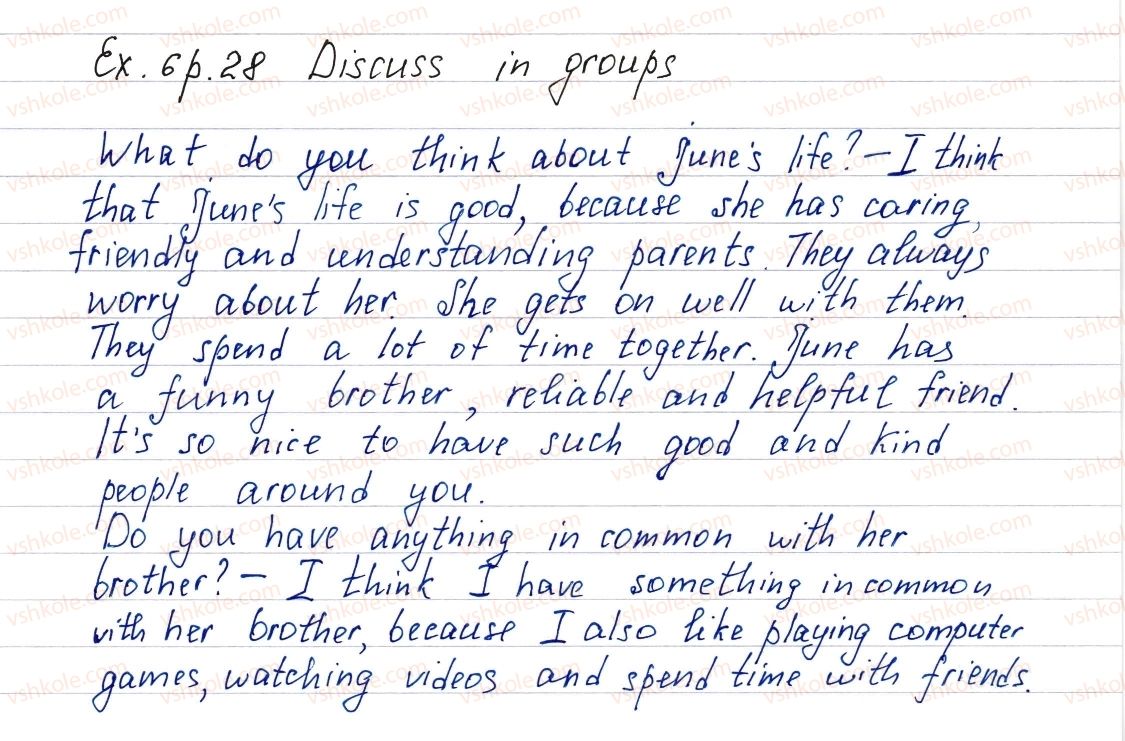 Ex. 6 p. 28 Discuss in groups
What do you think about June's life? – I think
that June's life is good, because she has caring,
friendly and understanding parents. They always
worry about her. She gets on well with them.
They spend a lot of time together. June has
a funny brother, reliable and helpful friend.
It's so nice to have such good and kind
people around you.
Do you have anything in common with her
brother? – I think I have something in common
with her brother, because I also like playing computer
games, watching videos and spend time with friends.